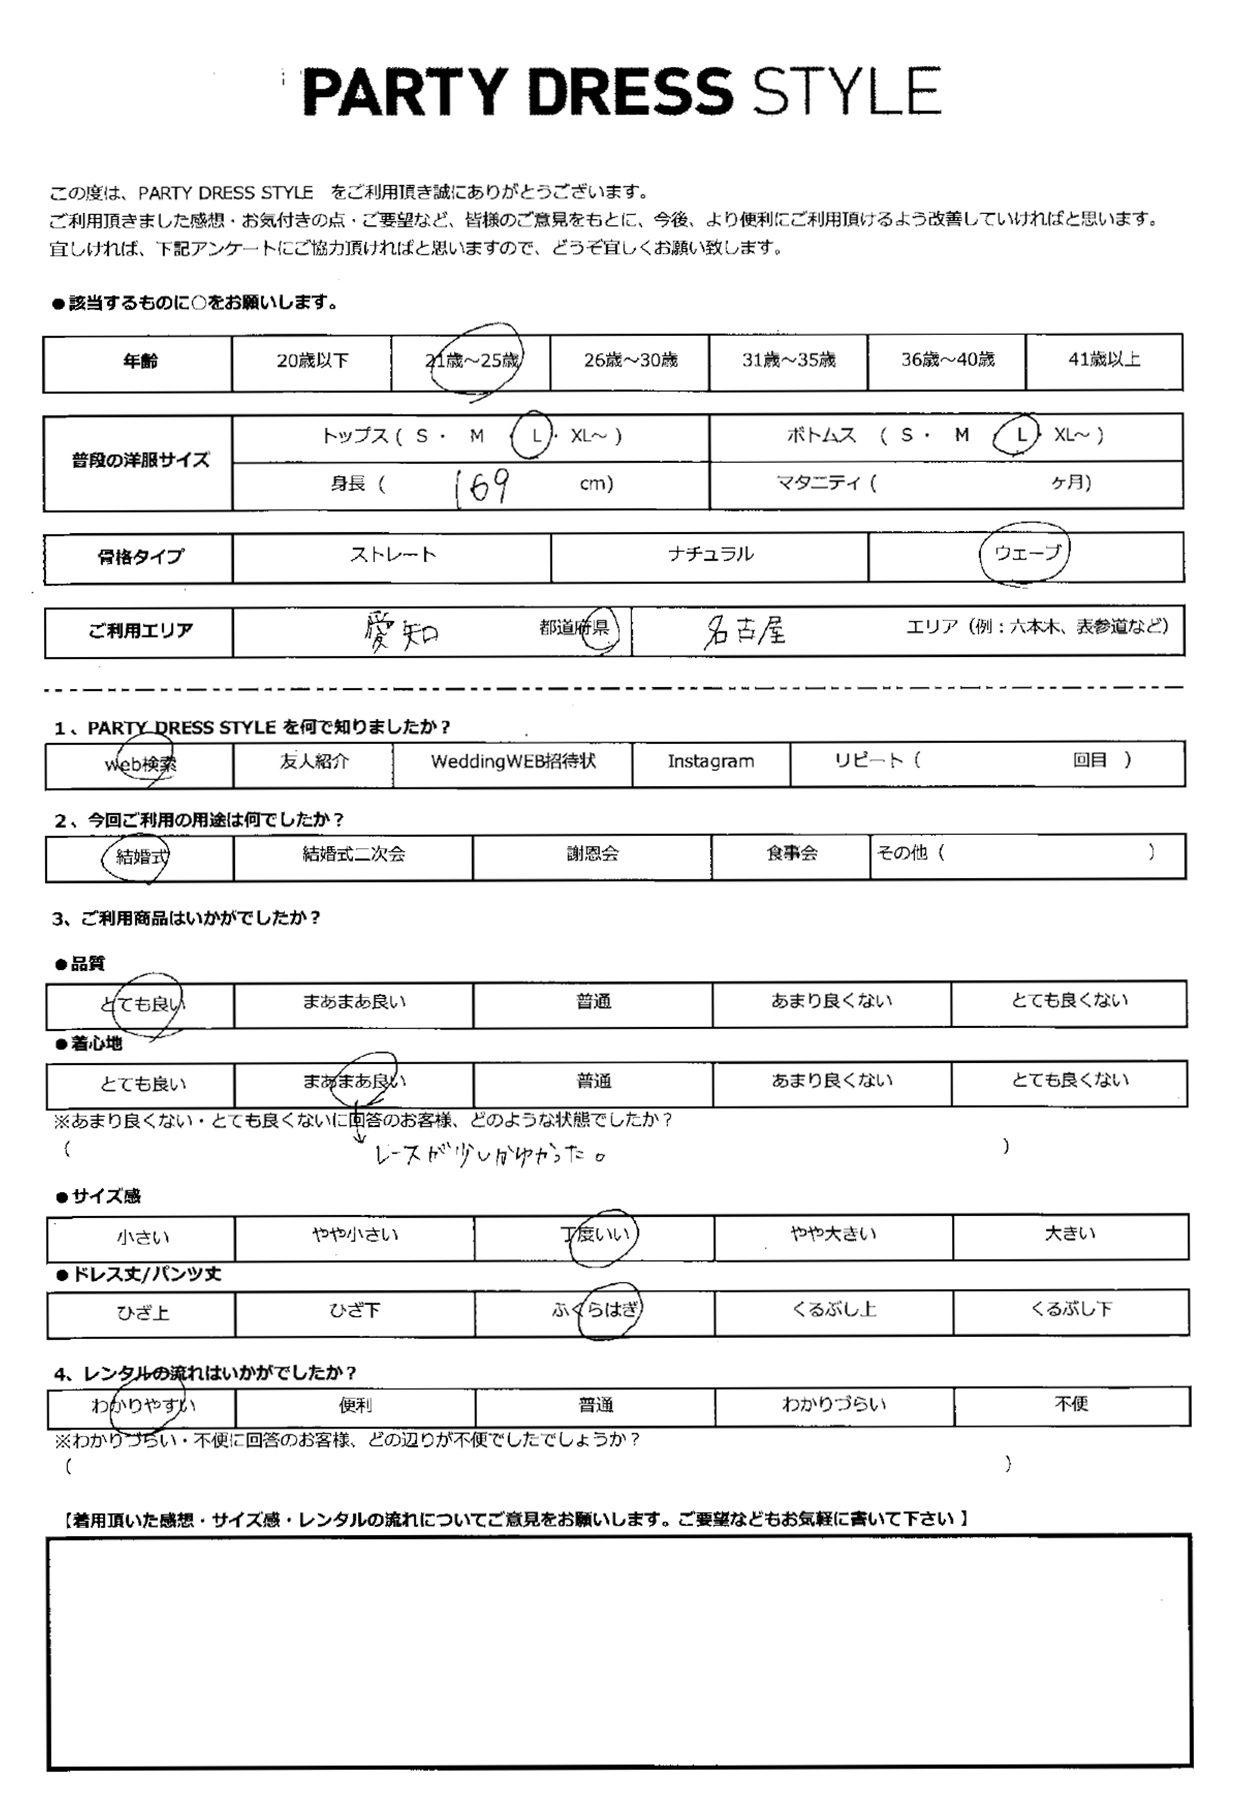 PARTY DRESS STYLE
この度は、PARTY DRESS STYLE をご利用頂き誠にありがとうございます。
ご利用頂きました感想・お気付きの点・ご要望など、皆様のご意見をもとに、今後、より便利にご利用頂けるよう改善していければと思います。
宜しければ、下記アンケートにご協力頂ければと思いますので、どうぞ宜しくお願い致します。
●該当するものに○をお願いします。
年齢 20歳以下 21歳～25歳 26歳～30歳 31歳～35歳 36歳～40歳 41歳以上
普段の洋服サイズ トップス ( S ・ M ・ L ・ XL～ ) ボトムス ( S ・ M ・ L ・ XL～ )
身長 ( 169 cm) マタニティ ( ヶ月)
骨格タイプ ストレート ナチュラル ウェーブ
ご利用エリア 愛知 都道府県 名古屋 エリア（例：六本木、表参道など）
1、PARTY DRESS STYLE を何で知りましたか？
web検索 友人紹介 WeddingWEB招待状 Instagram リピート ( 回目 )
2、今回ご利用の用途は何でしたか？
結婚式 結婚式二次会 謝恩会 食事会 その他 ( )
3、ご利用商品はいかがでしたか？
●品質
とても良い まあまあ良い 普通 あまり良くない とても良くない
●着心地
とても良い まあまあ良い 普通 あまり良くない とても良くない
※あまり良くない・とても良くないに回答のお客様、どのような状態でしたか？
( レースが少しかゆかった。 )
●サイズ感
小さい やや小さい 丁度いい やや大きい 大きい
●ドレス丈/パンツ丈
ひざ上 ひざ下 ふくらはぎ くるぶし上 くるぶし下
4、レンタルの流れはいかがでしたか？
わかりやすい 便利 普通 わかりづらい 不便
※わかりづらい・不便に回答のお客様、どの辺りが不便でしたでしょうか？
( )
【着用頂いた感想・サイズ感・レンタルの流れについてご意見をお願いします。ご要望などもお気軽に書いて下さい 】